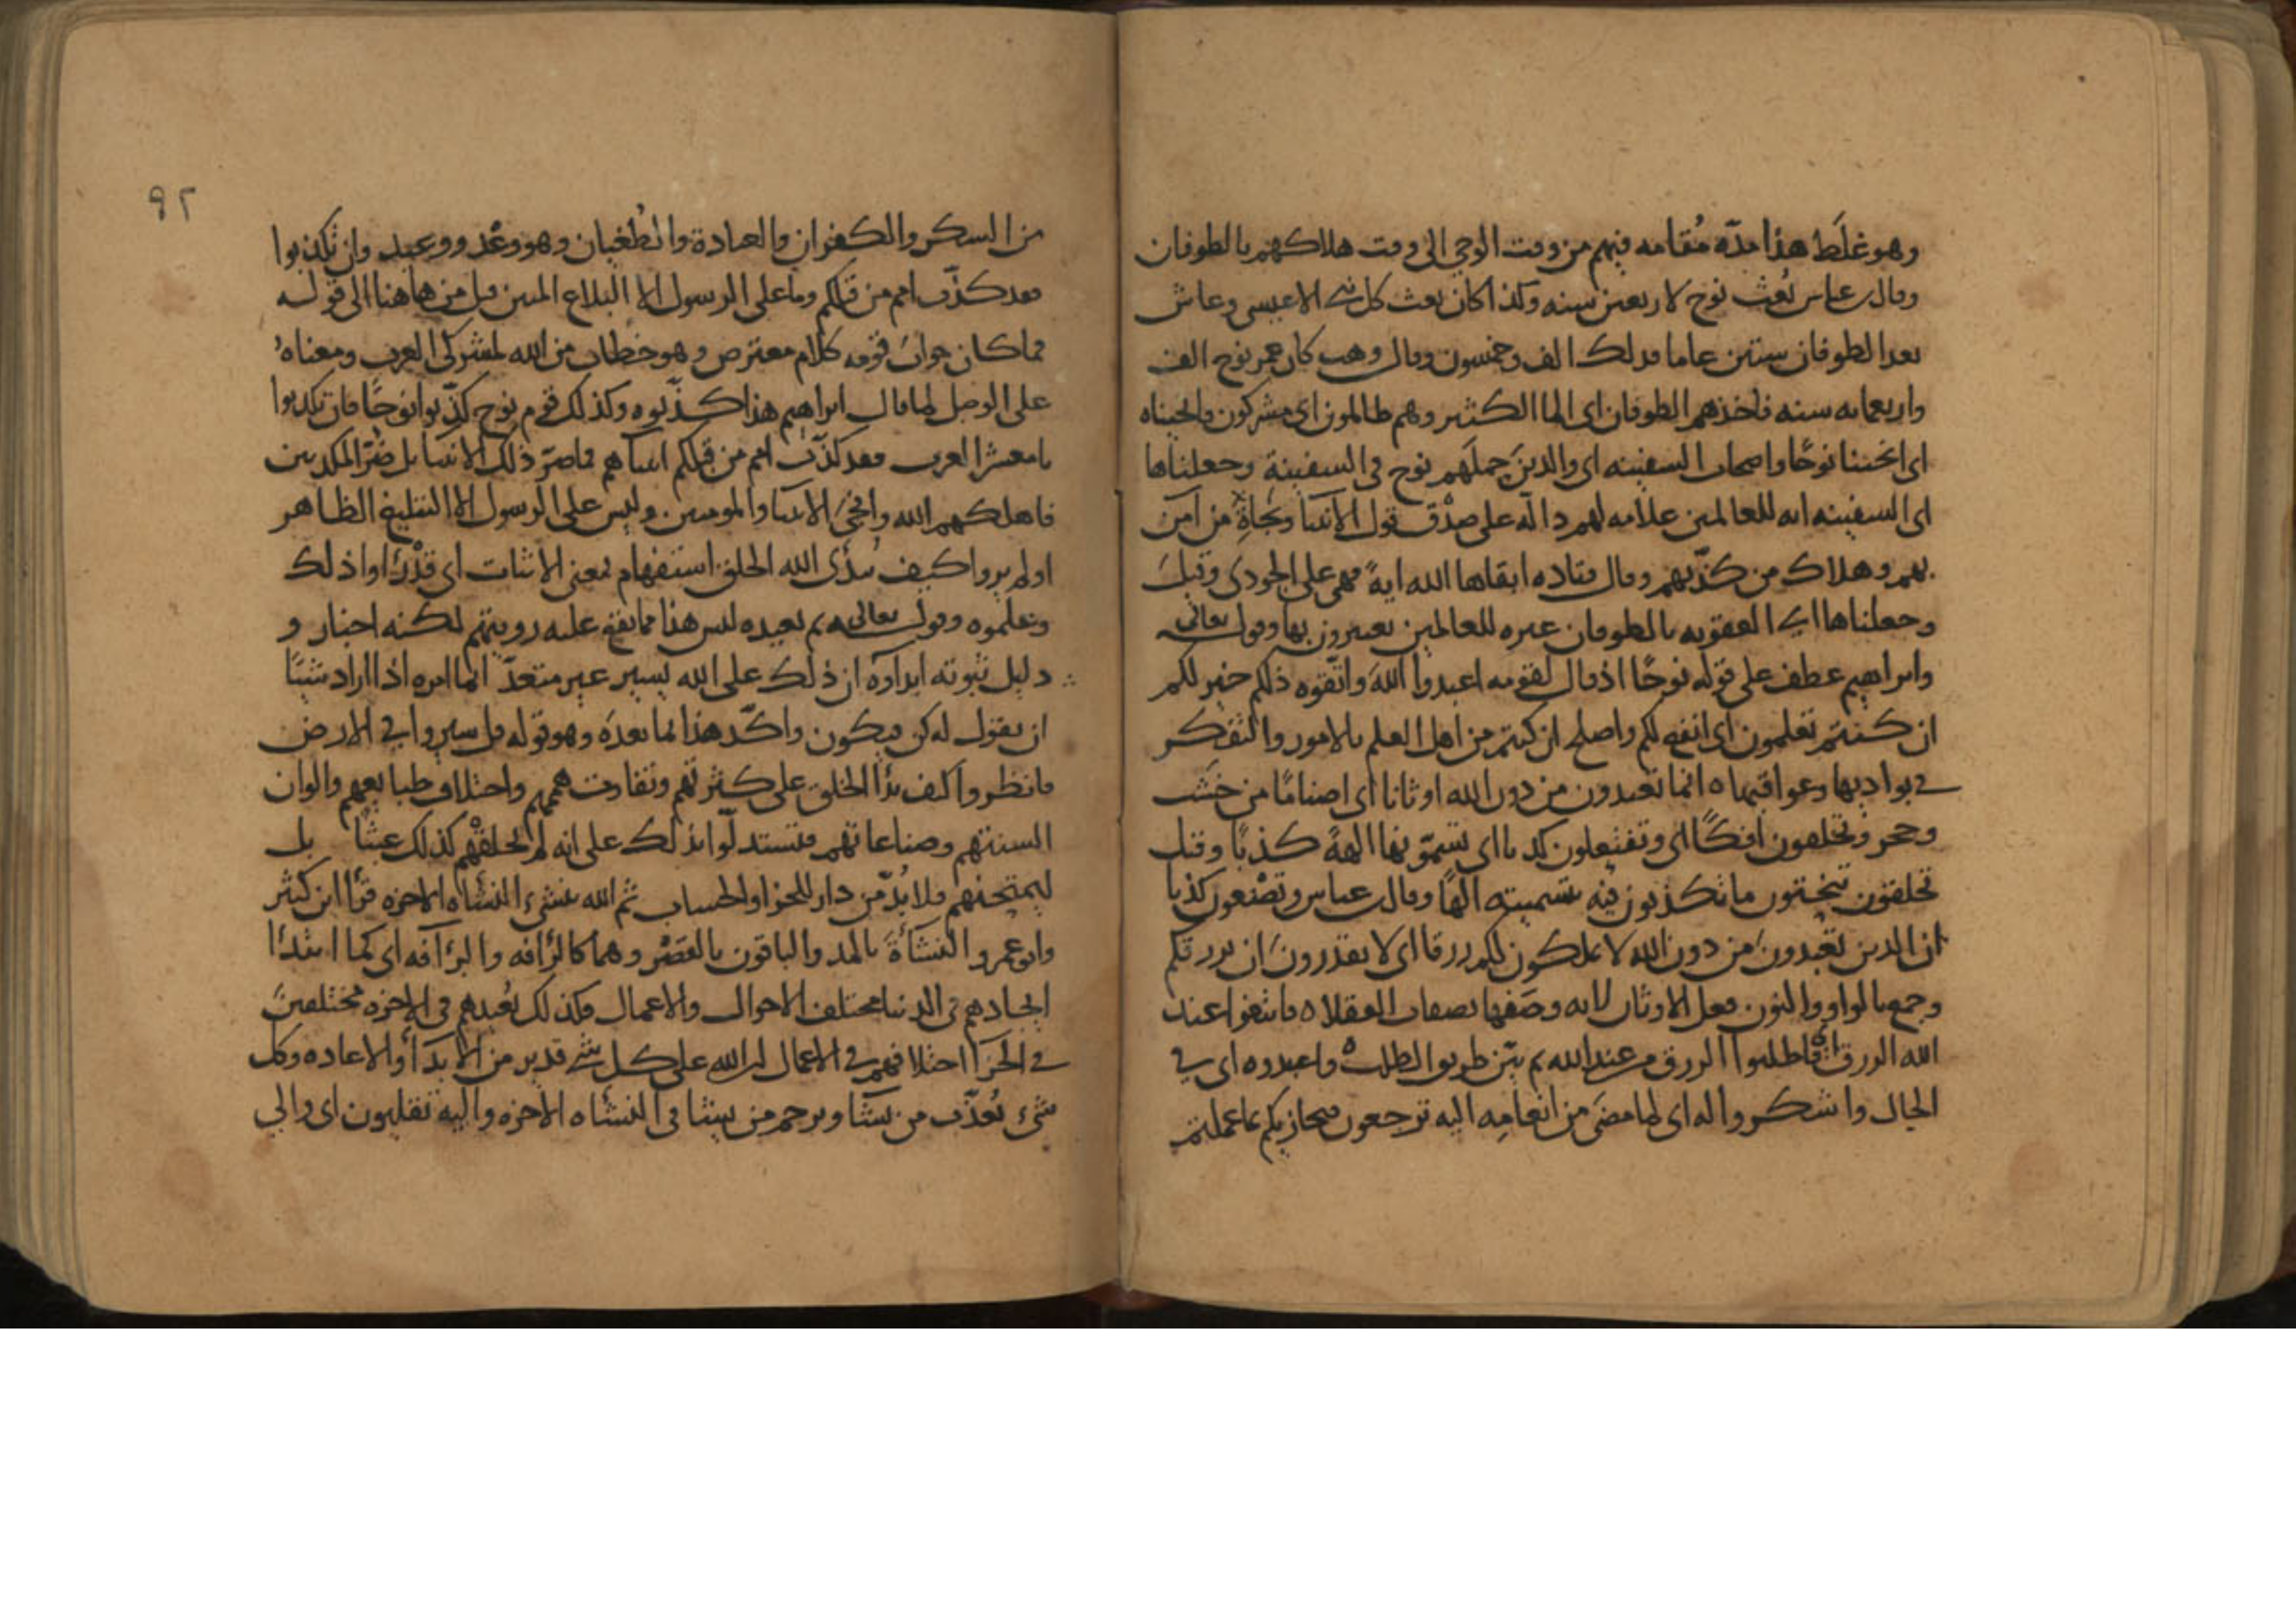 وهو غلَط هذا مدّه مُقامه فيهم من وقت الوحي الى وقت هلاكهم بالطوفان
وقال عباس بُعث نوح لاربعين سنه وكذا كان بعث كل نبي الا عيسى وعاش
بعد الطوفان ستين عاما فذلك الف وخمسون وقال وهب كان عمر نوح الف
واربعمايه سنه فاخذهم الطوفان اى الما الكثير وهم ظالمون اى مشركون فانجيناه
اى انجينا نوحًا واصحاب السفينه اى والذين حملَهم نوح في السفينة وجعلناها
اى السفينه ايه للعالمين علامه لهم دالّه على صِدْق قول الانبيا ونجاةِ من آمن
بهم وهلاك من كذّبهم وقال قتاده ابقاها الله ايةً فهي على الجودي وقيل
وجعلناها اى العقوبه بالطوفان عبره للعالمين يعتبرون بها وقوله تعالى
وابراهيم عطف على قوله نوحًا اذ قال لقومه اعبدوا اللهَ واتّقوه ذلكم خير لكم
ان كنتم تعلمون اى انفع لكم واصلح ان كنتم من اهل العلم بالامور والتفكر
في بواديها وعواقبها ه انما تعبدون من دون الله اوثانا اى اصنامًا من خشب
وحجر وتخلقون افكًا اى وتفتعلون كذبا اى تسمّونها الهةً كذبًا وقيل
تخلقون تنحتون ما تكذبون فيه بتسميته الهًا وقال عباس وتصْنعون كذبا
ان الذين تعبدونَ من دون الله لا يملكون لكم رزقا اى لا يقدرونَ ان يرزقكم
وجمع بالواو والنون فعل الاوثان لانه وصَفها بصفات العقلا ه فابتغوا عند
الله الرزق اى فاطلبوا الرزق من عند الله ثم بيّن طريق الطلب ه واعبدوه اى في
الحال واشكروا له اى لما مضَى من انعامِه اليه ترجعون فيجازيكم بما عملتم
٩٢
من السكر والكفران والعبادة والطُغيان وهو وعْد ووعيد وان تكذبوا
فقد كذّب امم من قبلكم وما على الرسول الا البلاع المبين قيل من هاهنا الى قوله
فما كان جوابَ قومه كلام معترض وهو خطاب من الله لمشركي العرب ومعناهُ
على الوصل لما قال ابراهيم هذا كذّبوه وكذلك قوم نوح كذّبوا نوحًا فان تكذبوا
يا معشر العرب فقد كذّب امم من قبلكم انبياهم فما ضرّ ذلك الانبيا بل ضرّ المكذبين
فاهلكهم الله وانجى الانبيا والمومنين وليس على الرسول الا التبليغ الظاهر
اولم يروا كيف يبدئ الله الخلق استفهام بمعنى الاثبات اى قد راوا ذلك
وتعلموه وقوله تعالى ثم يعيده ليس هذا مما يقع عليه رويتهم لكنه اخبار و
دليل ثبوته ابداوه ان ذلك على الله يسير غير متعذّر انما امره اذا اراد شيئًا
ان يقول له كن فيكون واكّد هذا بما بعده وهو قوله قل سيروا في الارض
فانظروا كيف بدأ الخلق على كثرتهم وتفاوت هممهم واختلاف طبايعهم والوان
السنتهم وصناعاتهم فتستدلّوا بذلك على انه لم يخلقْهم كذلك عبثًا بل
ليمتحنهم فلا بُدّ من دار للجزا والحساب ثم الله ينشئ النشاه الاخره قرأ ابن كثير
وابو عمرو النشأةَ بالمد والباقون بالقصْر وهما كالرأفه والرآفه اى كما ابتدأ
ايجادهم في الدنيا مختلف الاحوال والاعمال فكذلك نُعيدهم في الاخره مختلفين
في الجزا اختلافهم في الاعمال ان الله على كل شي قدير من الابدا والاعاده وكل
شئ يُعذّب من يشا ويرحم من يشا في النشاه الاخره واليه تقلبون اى والى